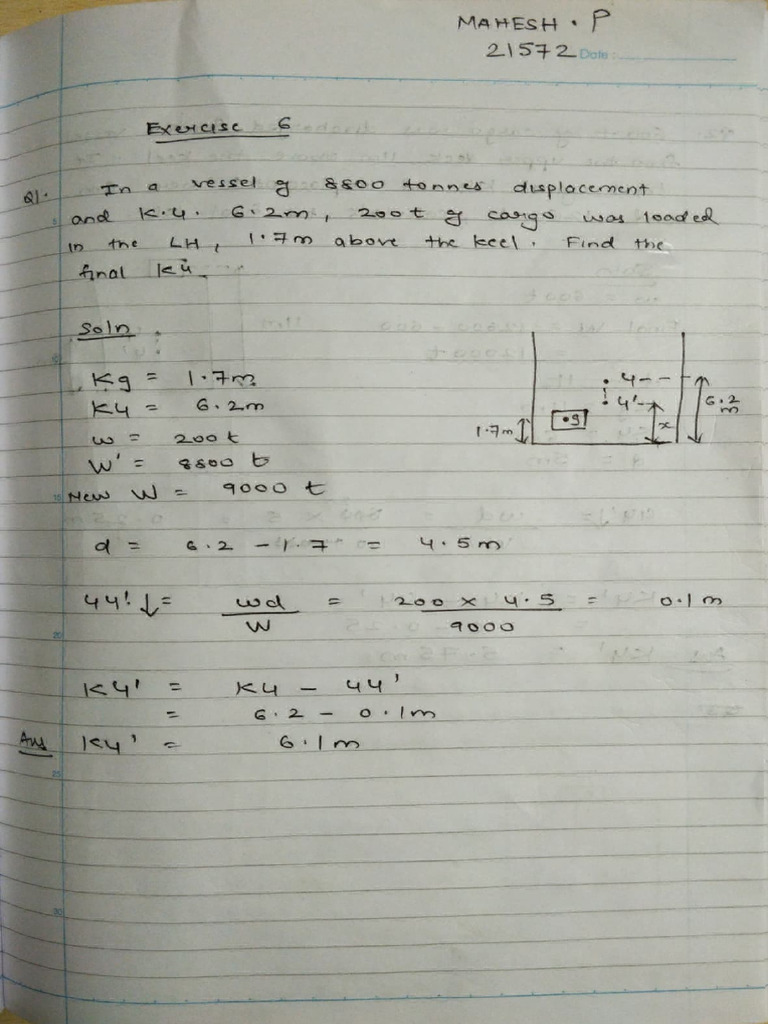 MAHESH . P
21572 Date:
Exercise 6
Q1. In a vessel of 8800 tonnes displacement
and K.G. 6.2m, 200t of cargo was loaded
in the LH, 1.7m above the keel. Find the
final KG.
Soln :
Kg = 1.7m
KG = 6.2m
w = 200t
W' = 8800 t
New W = 9000 t
G
G'
g
1.7m
x
6.2 m
d = 6.2 - 1.7 = 4.5m
GG' ↓ = wd / W = 200 x 4.5 / 9000 = 0.1m
KG' = KG - GG'
= 6.2 - 0.1m
Ans KG' = 6.1m